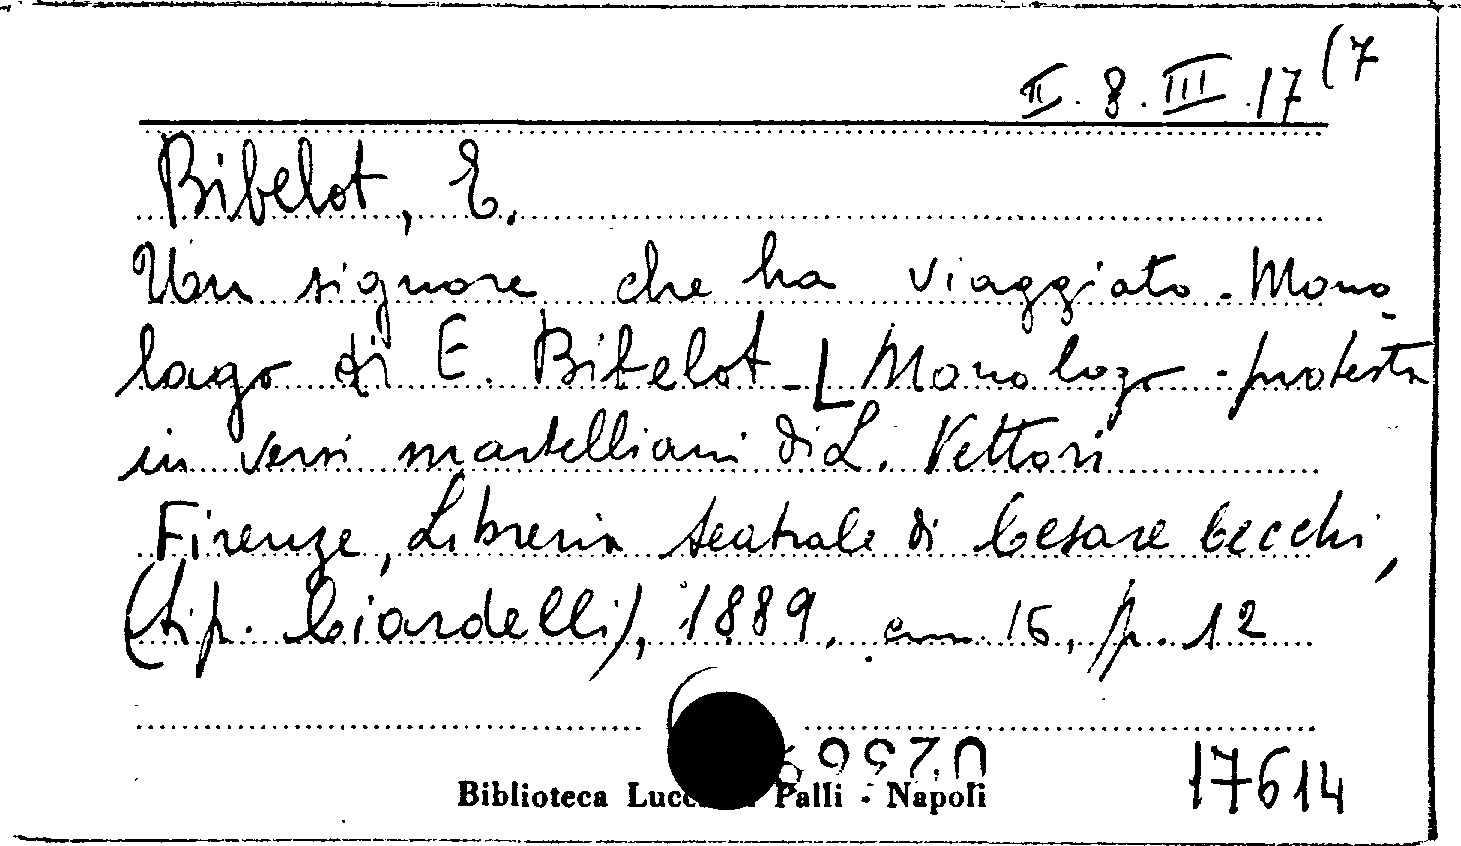 II. 8. III. 17 (7
Bibelot, E.
Un signore che ha viaggiato - Mono-
logo di E. Bibelot - L Monologo - protesta
in versi martelliani di L. Vettori
Firenze, Libreria teatrale di Cesare Cecchi,
(tip. Ciardelli), 1889. cm 16, p. 12
17614
Biblioteca Palli - Napoli